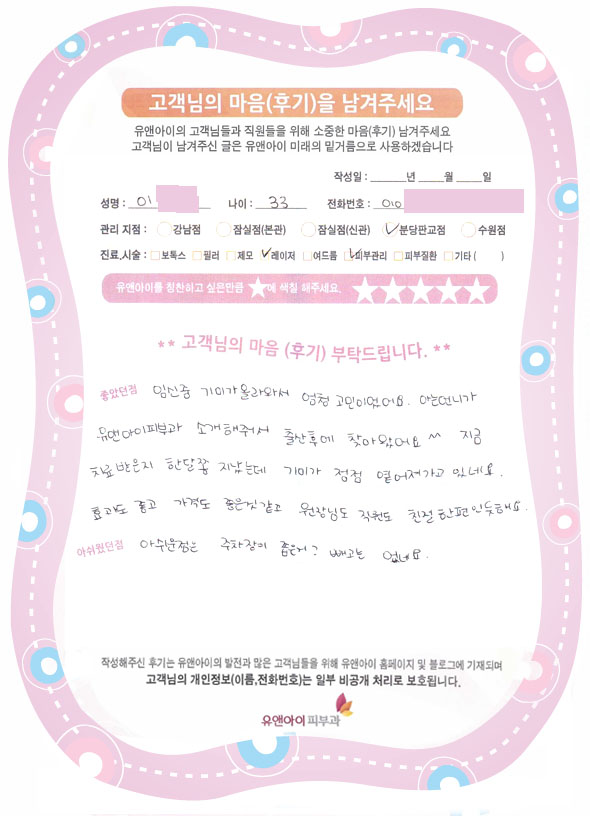 고객님의 마음(후기)을 남겨주세요
유앤아이의 고객님들과 직원들을 위해 소중한 마음(후기) 남겨주세요
고객님이 남겨주신 글은 유앤아이 미래의 밑거름으로 사용하겠습니다
작성일 : ______년 _____월 _____일
성명 : 이 나이 : 33 전화번호 : 010
관리 지점 : 강남점 잠실점(본관) 잠실점(신관) ✓분당판교점 수원점
진료,시술 : □보톡스 □필러 □제모 ✓레이저 □여드름 ✓피부관리 □피부질환 □기타 ( )
유앤아이를 칭찬하고 싶은만큼 ★에 색칠 해주세요. ★★★★★
** 고객님의 마음 (후기) 부탁드립니다. **
좋았던점 임신중 기미가올라와서 엄청 고민이었어요. 아는언니가
유앤아이피부과 소개해줘서 출산후에 찾아왔어요 ^^ 지금
치료받은지 한달쯤 지났는데 기미가 점점 옅어져가고 있네요.
효과도 좋고 가격도 좋은것같고 원장님도 직원도 친절한편인듯해요.
아쉬웠던점 아쉬운점은 주차장이 좁은거? 빼고는 없네요.
작성해주신 후기는 유앤아이의 발전과 많은 고객님들을 위해 유앤아이 홈페이지 및 블로그에 기재되며
고객님의 개인정보(이름,전화번호)는 일부 비공개 처리로 보호됩니다.
유앤아이피부과